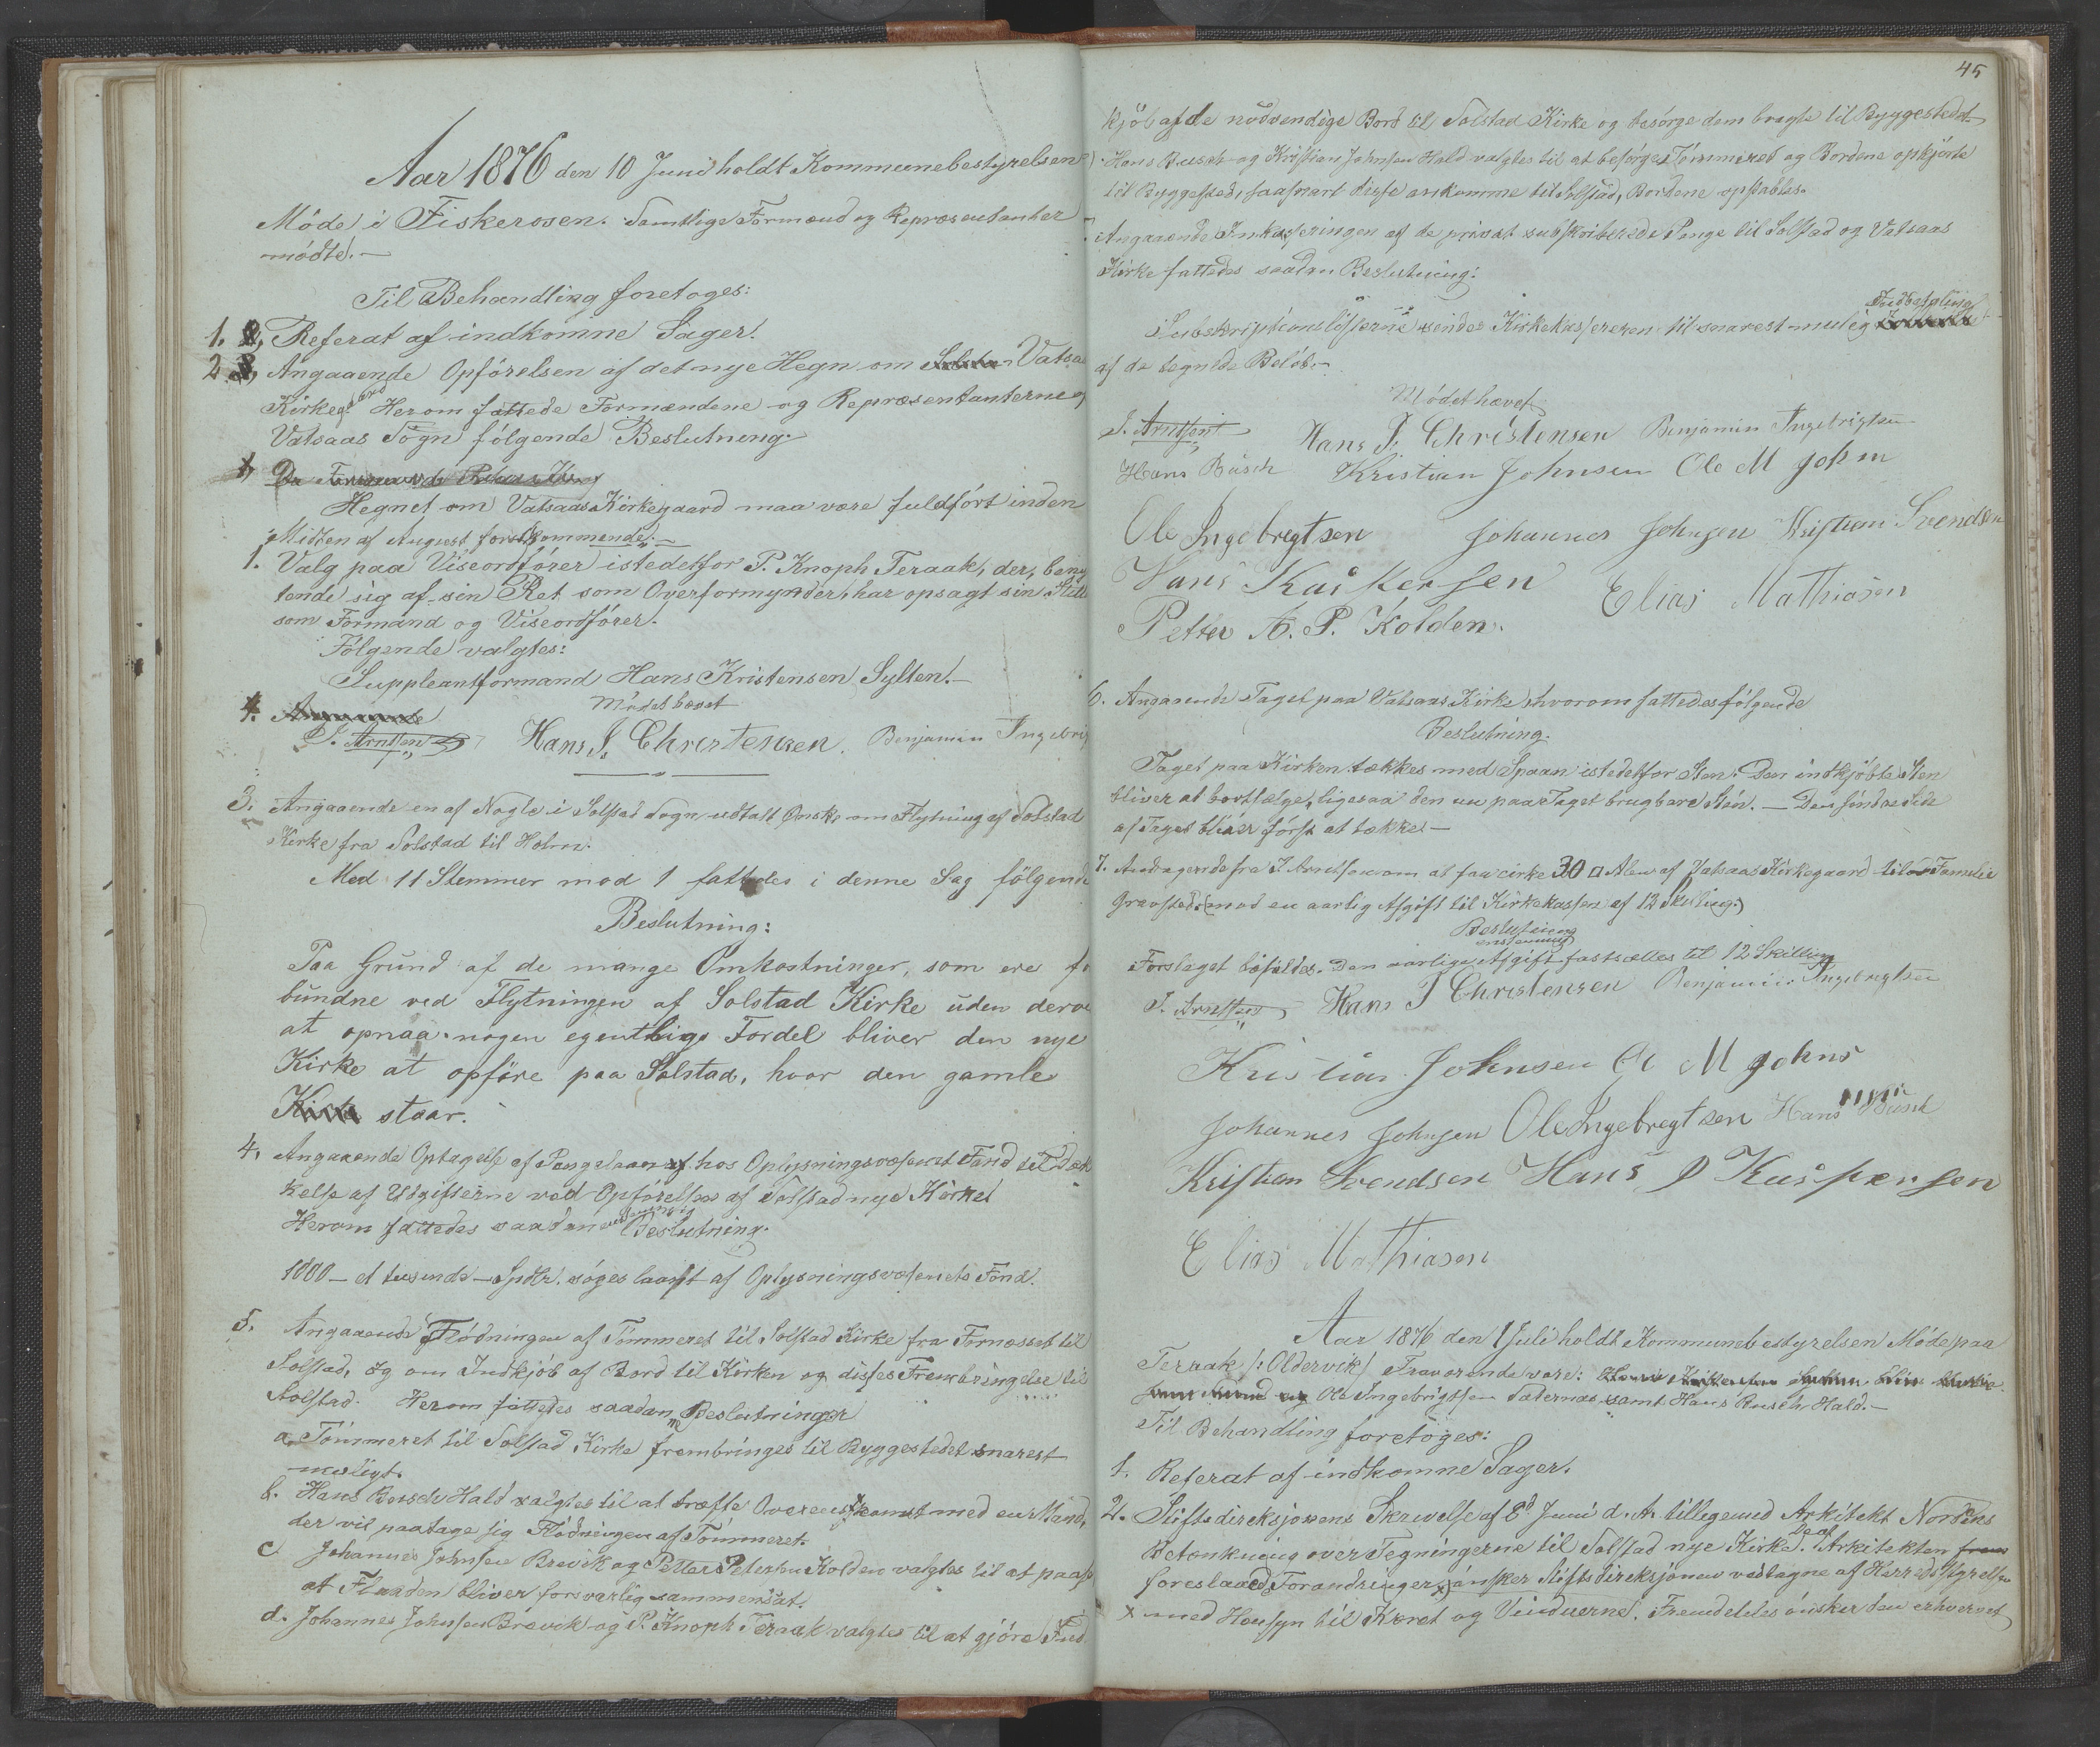 Aar 1876 den 10 Juni holdt Kommunebestyrelsen
Möde i Fiskerosen. Samtlige Formænd og Repræsentanter
mödte.—
Til Behandling foretoges:
1. Referat af indkomne Sager.
2. Angaaende Opförelsen af det nye Hegn om Vatsaas
Kirkegaard Herom fattede Formændene og Repræsentanterne af
Vatsaas Sogn fölgende Beslutning.
Hegnet om Vatsaas Kirkegaard maa være fuldfört inden
Midten af August förstkommende.—
1. Valg paa Viseordförer istedetfor P. Knoph Teraak, der, beny
tende sig af sin Ret som Overformynder, har opsagt sin Still
som Formand og Viseordförer.
Fölgende valgtes:
Suppleantformand Hans Kristensen Sylten.—
4.
Mödet hævet
J. Arntsen Hans J. Christensen. Benjamin Ingebrig
3. Angaaende en af Nogle i Solstad Sogn udtalt Önske om Flytning af Solstad
Kirke fra Solstad til Holm.
Med 11 Stemmer mod 1 fattedes i denne Sag fölgende
Beslutning:
Paa Grund af de mange Omkostninger, som ere fo
bundne ved Flytningen af Solstad Kirke uden derve
at opnaa nogen egentlige Fordel bliver den nye
Kirke at opföre paa Solstad, hvor den gamle
Kirke staar.
4. Angaaende Optagelse af Pengelaan af hos Oplysningsvæsenet Fond til Dæk
kelse af Udgifterne ved Opförelsen af Solstad nye Kirke
Herom fattedes saadan enstemmig Beslutning.
1000 — et tusinde — Spdlr. söges laant af Oplysningsvæsenets Fond.
5. Angaaende Flödningen af Tömmeret til Solstad Kirke fra Fornæsset til
Solstad, og om Indkjöb af Bord til Kirken og disses Frembringelse til
Solstad. Herom fattedes saadanne Beslutninger
a. Tömmeret til Solstad Kirke frembringes til Byggestedet snarest
muligt.
b. Hans Busch Hald valgtes til at træffe Overenskomst med en Mand,
der vil paatage sig Flödningen af Tömmeret.
c. Johannes Johnsen Brevik og Petter Petersen Kolden valgtes til at paase
at Flaaden bliver forsvarlig sammensat.
d. Johannes Johnsen Brevik og P. Knoph Teraak valgtes til at gjöre Ind
45
kjöb af de nödvendige Bord til Solstad Kirke og besörge dem bragte til Byggestedet
Hans Busch og Kristian Johnsen Hald valgtes til at besörge Tömmeret og Bordene opkjörte
til Byggested, saasnart disse ankomme til Solstad, Bordene opstables.
Angaaende Inkasseringen af de privat subskriberede Penge til Solstad og Vatsaas
Kirke fattedes saadan Beslutning:
Subskriptionslisterne sendes Kirkekassereren til snarest mulig Indbetaling
af de tegnede Belöb.—
Mödet hævet
J. Arntsen Hans J. Christensen Benjamin Ingebrigtsen
Hans Busch Kristian Johnsen Ole M Johsn
Ole Ingebregtsen Johannes Johnsen Kristian Svendsen
Hans Kaspersen Elias Mathiasen
Petter A. P. Kolden.
6. Angaaende Taget paa Vatsaas Kirke, hvorom fattedes fölgende
Beslutning.
Taget paa Kirken tækkes med Spaan istedetfor Sten. Den indkjöbte Sten
bliver at bortsælge, ligesaa den nu paa Taget brugbare Sten. — Den söndre Side
af Taget bliver först at tække.—
7. Andragende fra J. Arntsen om at faa cirka 30 □ Alen af Vatsaas Kirkegaard til Familie
Gravsted (mod en aarlig Afgift til Kirkekassen af 12 Skilling.)
Beslutning
enstemmig
Forslaget bifaldes. Den aarlige Afgift fastsættes til 12 Skilling
J. Arntsen Hans J Christensen Benjamin Ingebregtsen
Kristian Johnsen Ol M Johns
Johannes Johnsen Ole Ingebregtsen Hans Busch
Kristian Svendsen Hans J Kaspersen
Elias Mathiasen
Aar 1876 den 1 Juli holdt Kommunebestyrelsen Möde paa
Terraak /: Oldervik/ Fraværende vare:
Ole Ingebrigtsen Saternas samt Hans Busch Hald.—
Til Behandling foretoges:
1. Referat af indkomne Sager.
2. Stiftsdireksjonens Skrivelse af 8d Juni d. A. tilligemed Arkitekt Nordens
Betænkning over Tegningerne til Solstad nye Kirke. De af Arkitekten
foreslaaede Forandringer x önsker Stiftsdireksjonen vedtagne af Herredsstyrelsen
x med Hensyn til Koret og Vinduerne. Fremdeles önsker den erhvervet